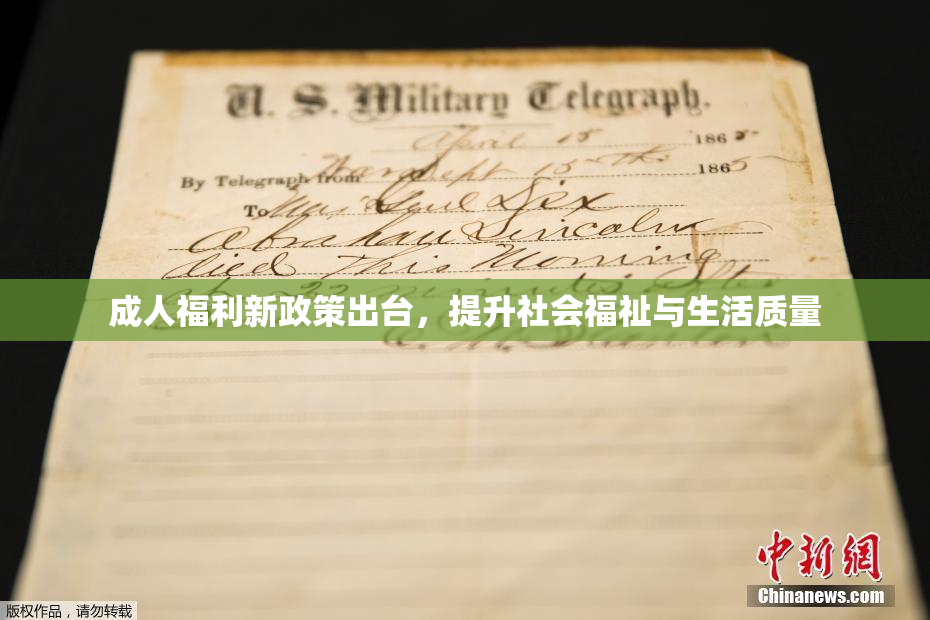 U. S. Military Telegraph.
April 15 1865
By Telegraph from War Dept 15th 1865
To Maj Genl Dix
Abraham Lincoln
died this Morning
22 minutes after
成人福利新政策出台，提升社会福祉与生活质量
中新網
Chinanews.com
版权作品，请勿转载